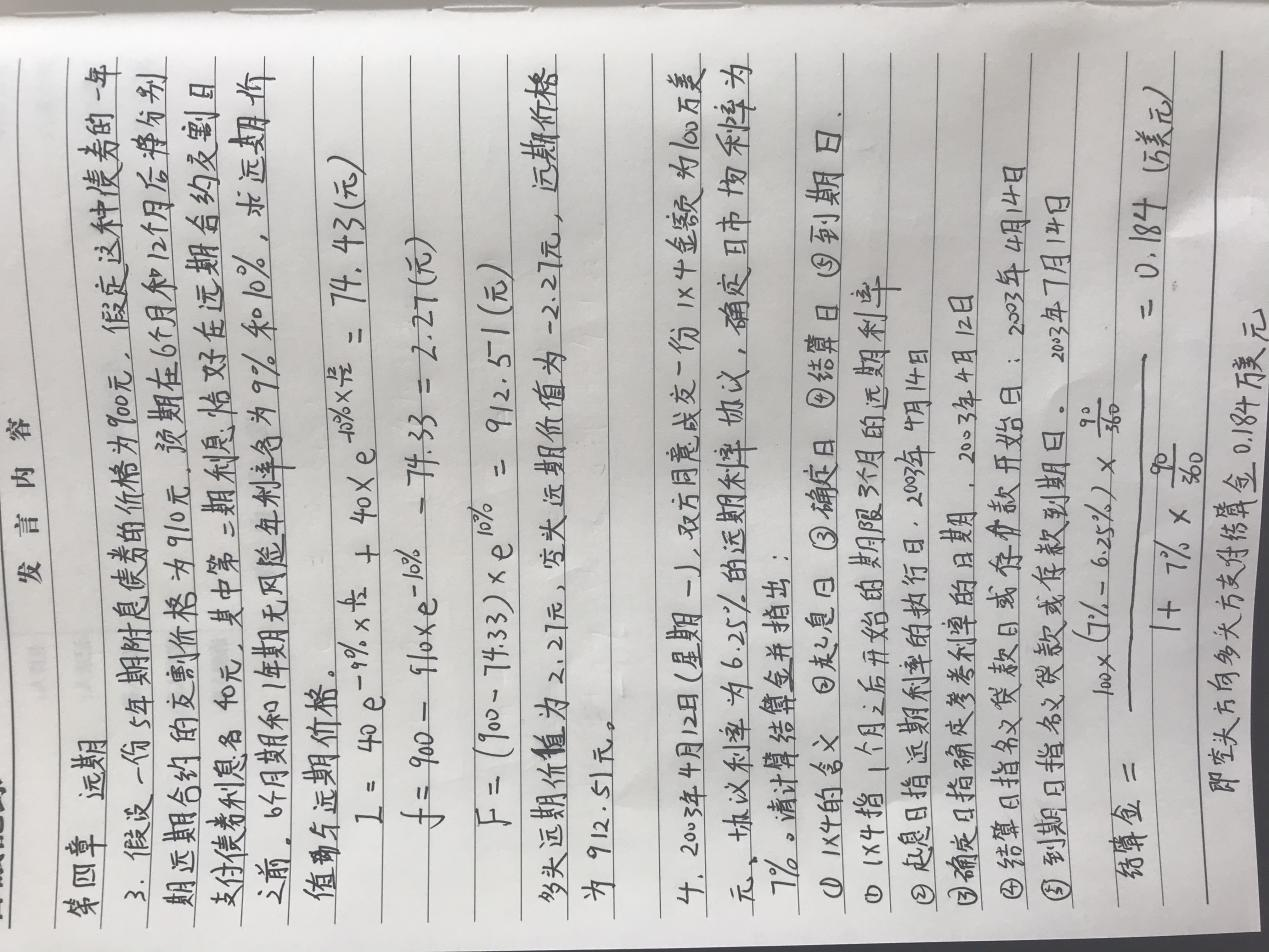 发言内容
第四章 远期
3. 假设一份5年期附息债券的价格为900元，假定这种债券的一年
期远期合约的交割价格为910元，预期在6个月和12个月后将分别
支付债券利息各40元，其中第二期利息恰好在远期合约交割日
之前。6个月期和1年期无风险年利率各为9%和10%，求远期价
值与远期价格.
I = 40 e^{-9% × 6/12} + 40 × e^{-10% × 12/12} = 74.43 (元)
f = 900 - 910×e^{-10%} - 74.33 = 2.27 (元)
F = (900 - 74.33) × e^{10%} = 912.51 (元)
多头远期价值为2.27元，空头远期价值为-2.27元，远期价格
为912.51元。
4. 2003年4月12日(星期一)，双方同意成交一份1×4金额为100万美
元，协议利率为6.25%的远期利率协议，确定日市场利率为
7%。请计算结算金并指出：
① 1×4的含义 ②起息日 ③确定日 ④结算日 ⑤到期日.
① 1×4指1个月之后开始的期限3个月的远期利率
② 起息日指远期利率的执行日. 2003年4月14日
③ 确定日指确定参考利率的日期. 2003年4月12日
④ 结算日指名义贷款日或存款开始日：2003年4月14日
⑤ 到期日指名义贷款或存款到期日。 2003年7月14日
结算金 = 100×(7% - 6.25%) × 90/360 / 1 + 7% × 90/360 = 0.184 (万美元)
即空头方向多头方支付结算金0.184万美元